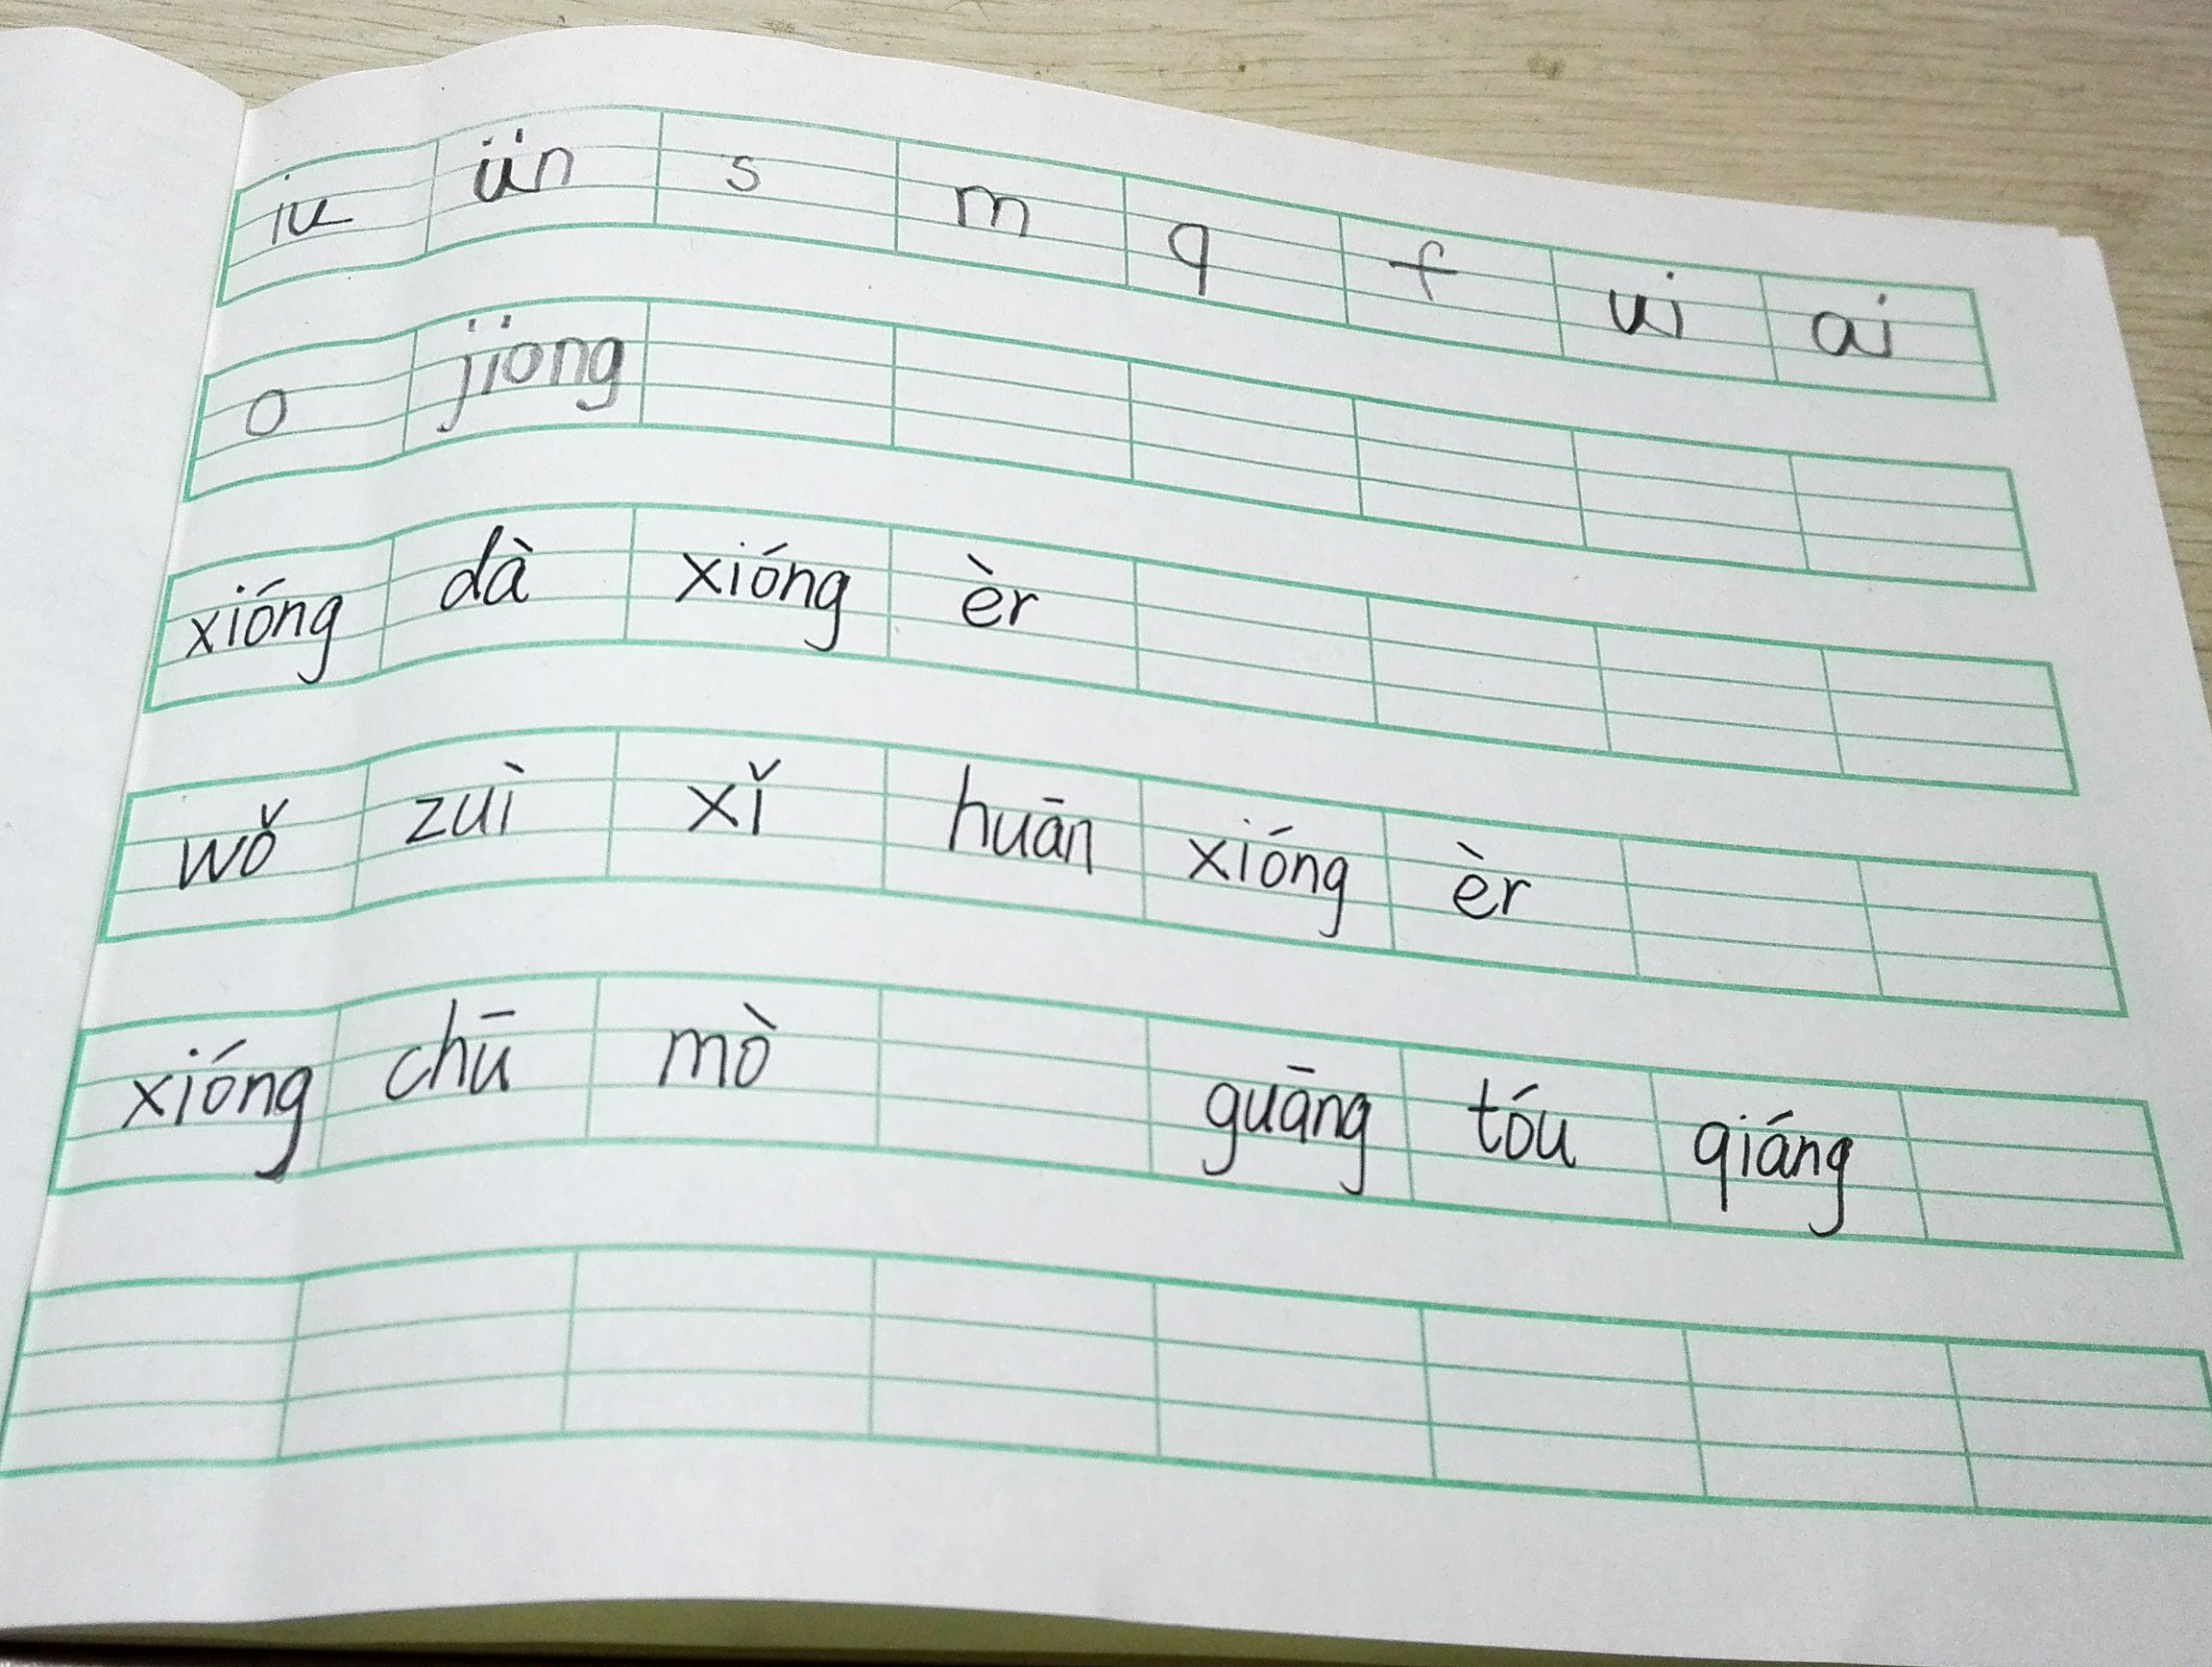 iu ün s m q f ui ai
o jiong
xióng dà xióng èr
wǒ zuì xǐ huān xióng èr
xióng chū mò guāng tóu qiáng